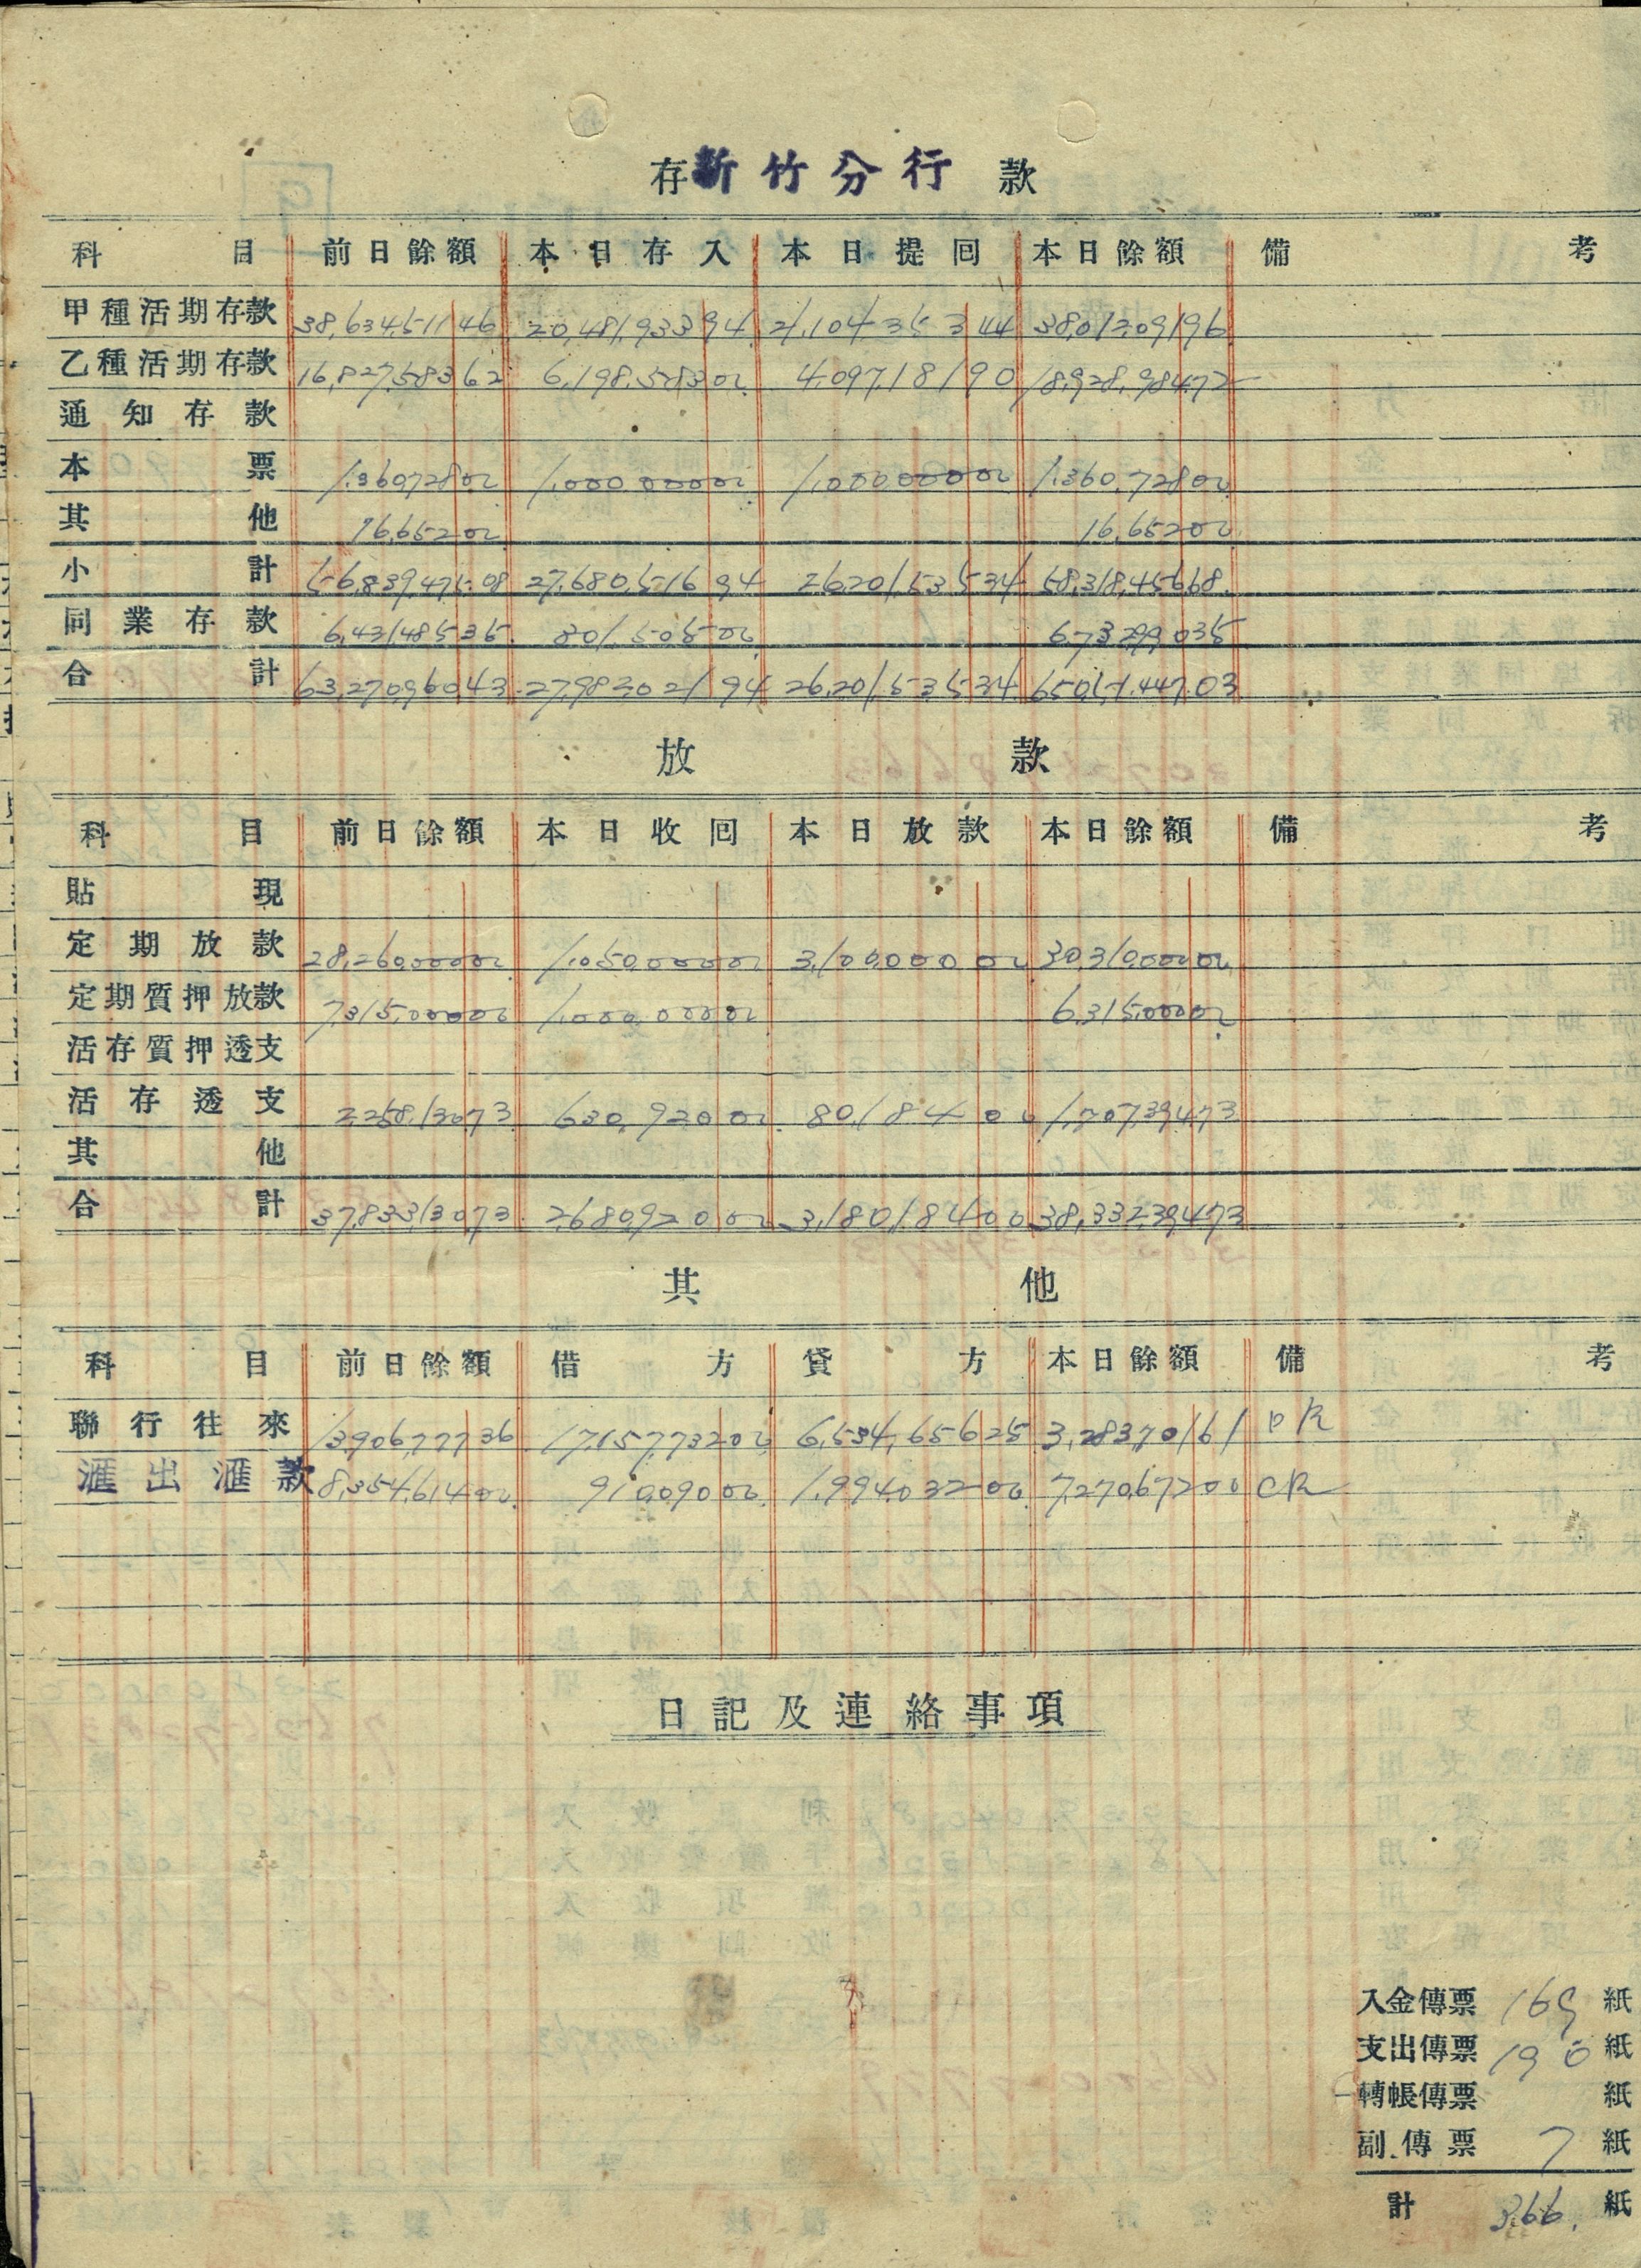 存新竹分行款
科目 前日餘額 本日存入 本日提回 本日餘額 備考
甲種活期存款 38,634,511.46 20,481,933.94 21,104,353.44 38,012,091.96
乙種活期存款 16,827,583.62 6,198,583.00 4,097,181.90 18,928,984.72
通知存款
本票 1,360,728.00 1,000,000.00 1,000,000.00 1,360,728.00
其他 16,652.00 16,652.00
小計 56,839,475.08 27,680,516.94 26,201,535.34 58,318,456.68
同業存款 6,431,485.35 301,505.00 6,732,990.35
合計 63,270,960.43 27,982,021.94 26,201,535.34 65,051,447.03
放款
科目 前日餘額 本日收回 本日放款 本日餘額 備考
貼現
定期放款 28,260,000.00 1,050,000.00 3,100,000.00 30,310,000.00
定期質押放款 7,315,000.00 1,000,000.00 6,315,000.00
活存質押透支
活存透支 2,258,130.73 630,920.00 80,184.00 1,707,394.73
其他
合計 37,833,130.73 2,680,920.00 3,180,184.00 38,332,394.73
其他
科目 前日餘額 借方 貸方 本日餘額 備考
聯行往來 13,906,777.36 17,157,732.00 6,534,656.25 3,283,701.61 DR
滙出滙款 8,354,614.00 910,090.00 1,994,032.00 7,270,672.00 CR
日記及連絡事項
入金傳票 169 紙
支出傳票 190 紙
轉帳傳票 紙
副傳票 7 紙
計 366. 紙